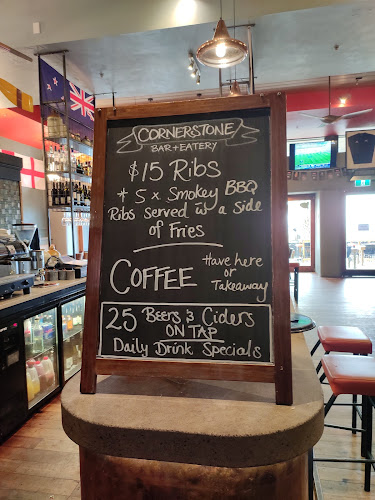 CORNERSTONE
BAR + EATERY
$15 RIBS
* 5 x SMOKEY BBQ
RIBS SERVED W A SIDE
OF FRIES
COFFEE
HAVE HERE
OR
TAKEAWAY
25 BEERS & CIDERS
ON TAP
DAILY DRINK SPECIALS